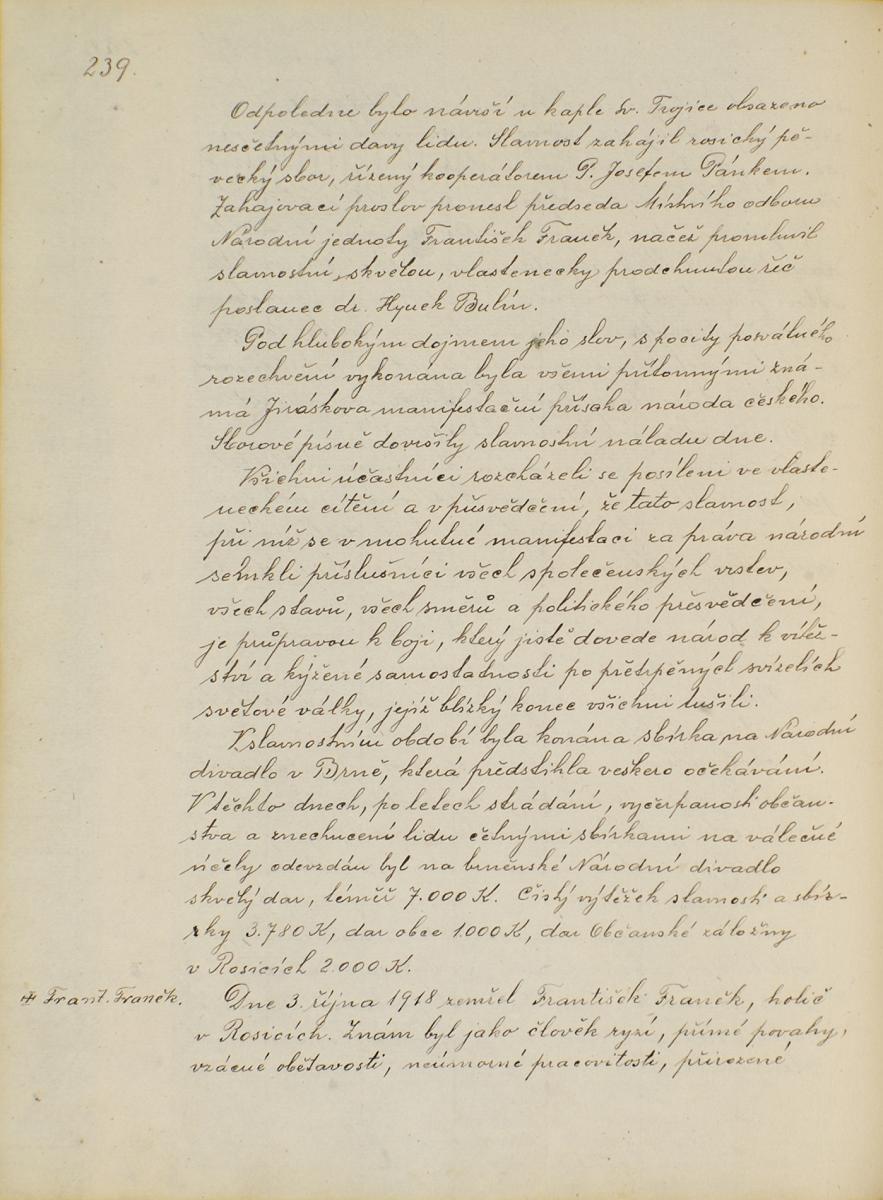 239.
Odpoledne bylo návrší u kaple sv. Trojice obsazeno
nesčetnými davy lidu. Slavnost zahájil rosický pě-
vecký sbor, řízený kooperátorem P. Josefem Pánkem.
Zahajovací proslov pronesl předseda Místního odboru
Národní jednoty František Franěk, načež promluvil
slavnostní, skvělou, vlastenecky prodchnutou řeč
poslanec dr. Hynek Bulín.
Pod hlubokým dojmem jeho slov, s pocity posvátného
rozechvění vykonána byla všemi přítomnými zná-
má Jiráskova manifestační přísaha národa českého.
Sborové písně dovršily slavnostní náladu dne.
Všichni účastníci rozcházeli se posíleni ve vlaste-
neckém cítění a v přesvědčení, že tato slavnost,
při níž se v mohutné manifestaci za práva národní
semkli příslušníci všech společenských vrstev,
všech stavů, všech směrů a politického přesvědčení,
je průpravou k boji, který jistě dovede národ k vítěz-
ství a kýžené samostatnosti po přetrpěných svízelích
světové války, jejíž blízký konec všichni tušili.
V slavnostním období byla konána sbírka na Národní
divadlo v Brně, která předstihla veškero očekávání.
V těchto dnech, po letech strádání, vyčerpanosti občan-
stva a znechucení lidu četnými sbírkami na válečné
účely odevzdán byl na brněnské Národní divadlo
skvělý dar, téměř 7.000 K. Čistý výtěžek slavnosti a sbír-
ky 3.780 K, dar obce 1.000 K, dar Občanské záložny
v Rosicích 2.000 K.
‡ Frant. Franěk. Dne 3. října 1918 zemřel František Franěk, holič
v Rosicích. Znám byl jako člověk ryzí, přímé povahy,
vzácné obětavosti, neúmorné pracovitosti, přirozené